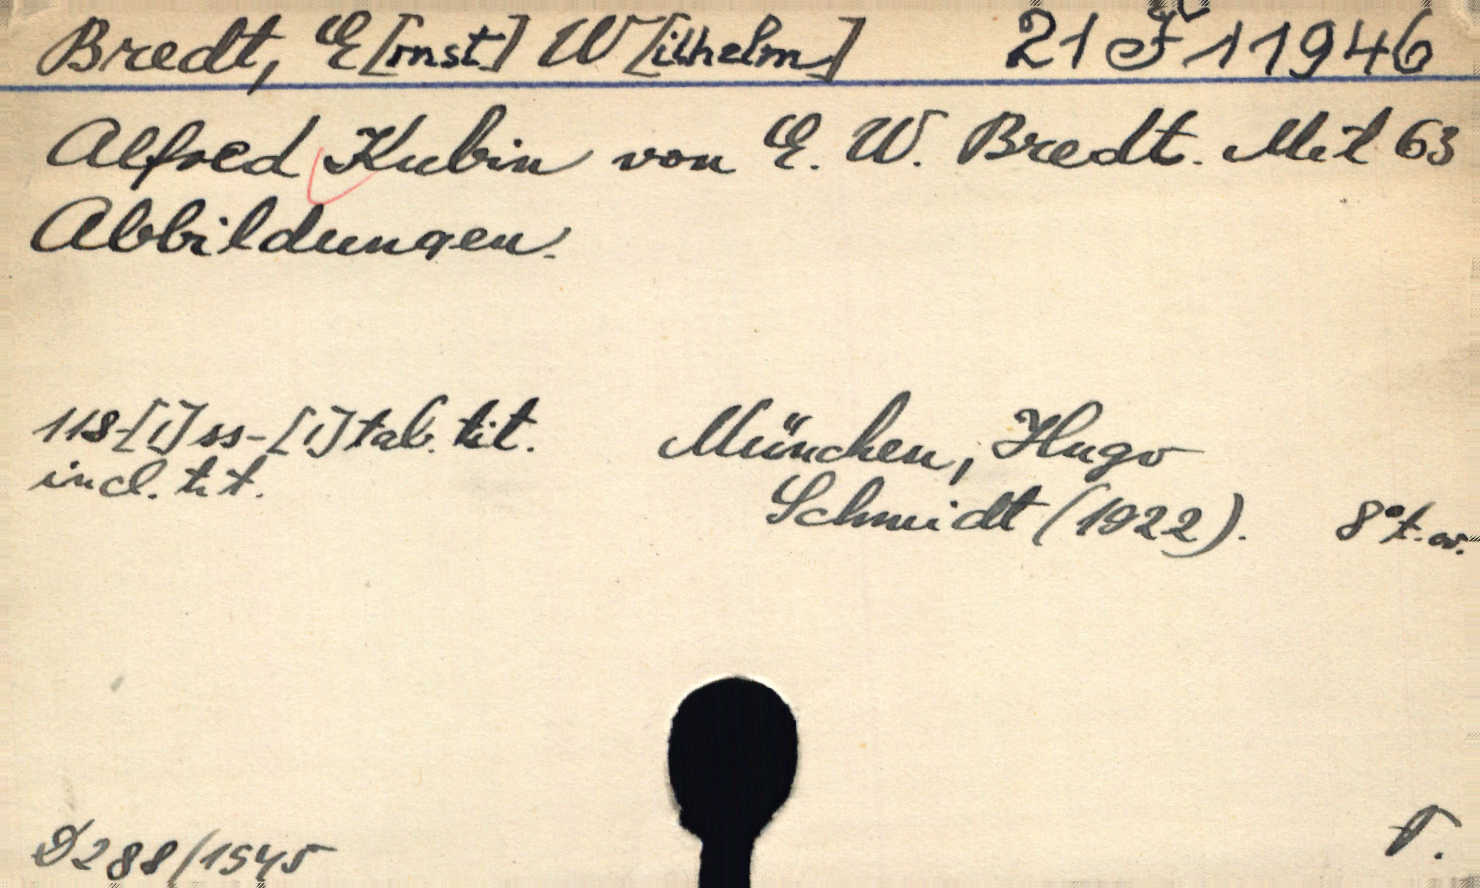 Bredt, E[rnst] W[ilhelm] 21 F 11946
Alfred Kubin von E. W. Bredt. Mit 63
Abbildungen.
118-[1] ss-[1] tab. tit.
incl. tit.
München, Hugo
Schmidt (1922). 8°
D 288/1545